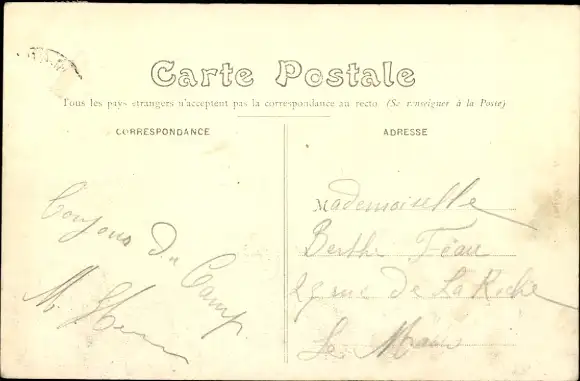 Carte Postale
Tous les pays étrangers n'acceptent pas la correspondance au recto (Se renseigner à la Poste)
CORRESPONDANCE
ADRESSE
du Camp
M.
Mademoiselle
Berthe Féau
rue de La Riche
Le Mans